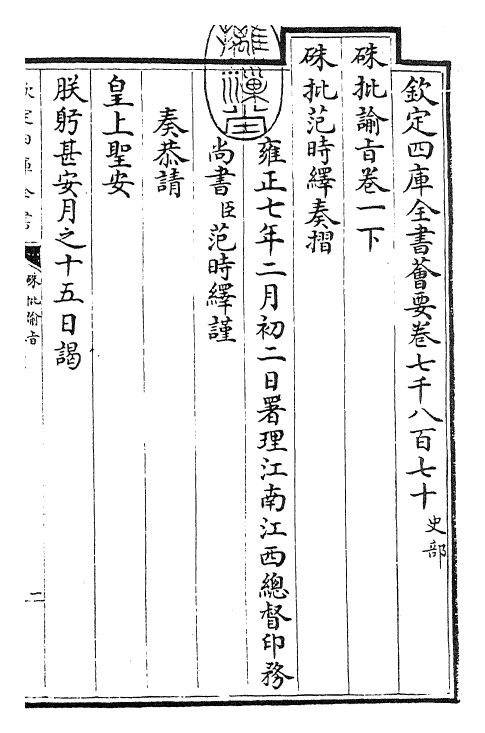 欽定四庫全書薈要卷七千八百七十 史部
硃批諭旨卷一下
硃批范時繹奏摺
雍正七年二月初二日署理江南江西總督印務
尚書臣范時繹謹
奏恭請
皇上聖安
朕躬甚安月之十五日謁
硃批諭旨